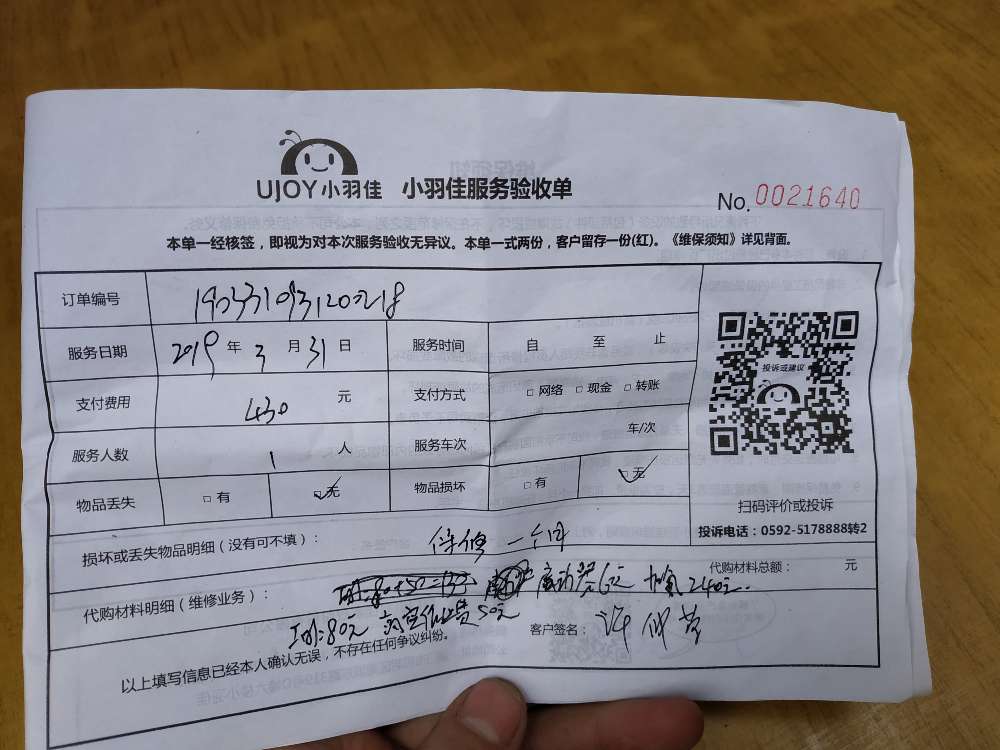 UJOY小羽佳 小羽佳服务验收单
No. 0021640
本单一经核签，即视为对本次服务验收无异议。本单一式两份，客户留存一份(红)。《维保须知》详见背面。
订单编号
服务日期 2019 年 3 月 31 日 服务时间 自 至 止
支付费用 430 元 支付方式 □ 网络 □ 现金 □ 转账
服务人数 1 人 服务车次 车/次
物品丢失 □ 有 □ 无 物品损坏 □ 有 □ 无
投诉或建议
扫码评价或投诉
投诉电话：0592-5178888转2
损坏或丢失物品明细（没有可不填）： 保修一个月
代购材料总额： 元
代购材料明细（维修业务）： 加氟240元
工时:80元 高空作业费50元
客户签名：
以上填写信息已经本人确认无误，不存在任何争议纠纷。